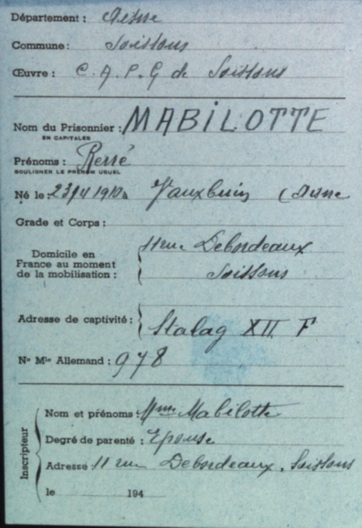 Département : Aisne
Commune : Soissons
Œuvre : C.A.P.G de Soissons
Nom du Prisonnier : MABILOTTE
EN CAPITALES
Prénoms : René
SOULIGNER LE PRÉNOM USUEL
Né le 23/4 1910 à Vauxbuin (Aisne
Grade et Corps :
Domicile en France au moment de la mobilisation : 11 rue Debordeaux
Soissons
Adresse de captivité : Stalag XII F
N° Mle Allemand : 978
Inscripteur
Nom et prénoms : Mme Mabilotte
Degré de parenté : Epouse
Adresse 11 rue Debordeaux. Soissons
le 194